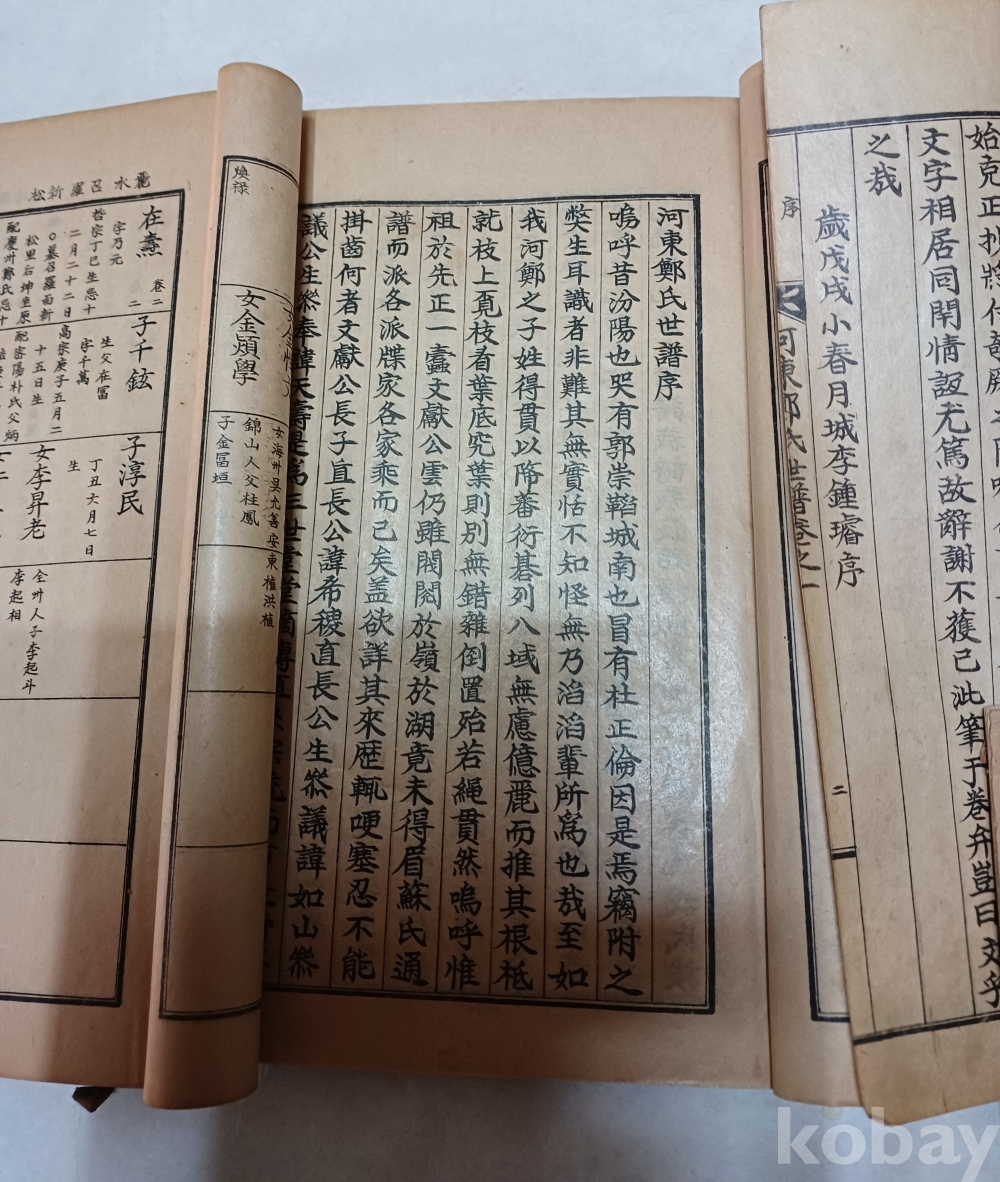 始克正
文字相居同閈情誼尤篤故辭謝不獲已泚筆于卷弁豈曰
之哉
歲戊戌小春月城李鍾璿序
序
河東鄭氏世譜卷之一
二
河東鄭氏世譜序
嗚呼昔汾陽也哭有郭崇韜城南也冒有杜正倫因是焉竊附之
弊生耳識者非難其無實恬不知怪無乃滔滔輩所爲也哉至如
我河鄭之子姓得貫以降蕃衍碁列八域無慮億麗而推其根柢
就枝上覓枝看葉底究葉則別無錯雜倒置殆若繩貫然嗚呼惟
祖於先正一蠹文獻公雲仍雖閥閱於嶺於湖竟未得眉蘇氏通
譜而派各派牒家各家乘而已矣盖欲詳其來歷輒哽塞忍不能
掛齒何者文獻公長子直長公諱希稷直長公生叅議諱如山叅
議公生叅奉諱天壽是爲三世
煥祿
女金熲學
女海州吳允善安東權洪植
錦山人父柱鳳
子金冨垣
麗水召羅新松
在燾
卷二
字乃元
哲宗丁巳生忌十
二月二十二日
○墓召羅面新
松里后坤坐原
配慶州鄭氏忌十
二
子千鉉
生父在冨
字千萬
高宗庚子五月二
十五日生
配密陽朴氏父炳
子淳民
丁丑六月七日
生
女李昇老
全州人子李起斗
李起相
kobay